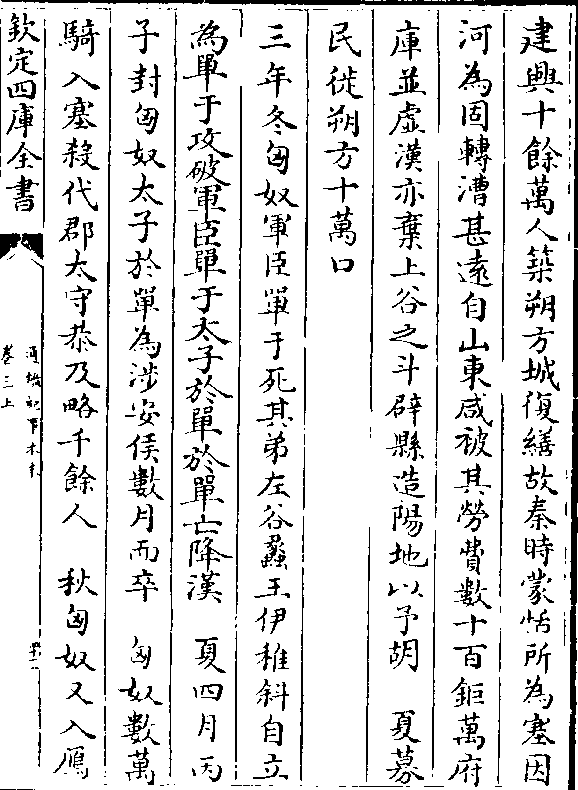 建興十餘萬人築朔方城復繕故秦時蒙恬所為塞因
河為固轉漕甚遠自山東咸被其勞費數十百鉅萬府
庫並虛漢亦棄上谷之斗辟縣造陽地以予胡　夏募
民徙朔方十萬口
三年冬匈奴軍臣單于死其弟左谷蠡王伊稚斜自立
為單于攻破軍臣單于太子於單於單亡降漢　夏四月丙
子封匈奴太子於單為涉安侯數月而卒　匈奴數萬
騎入塞殺代郡太守恭及略千餘人　秋匈奴又入鴈
欽定四庫全書
通鑑紀事本末
卷三上